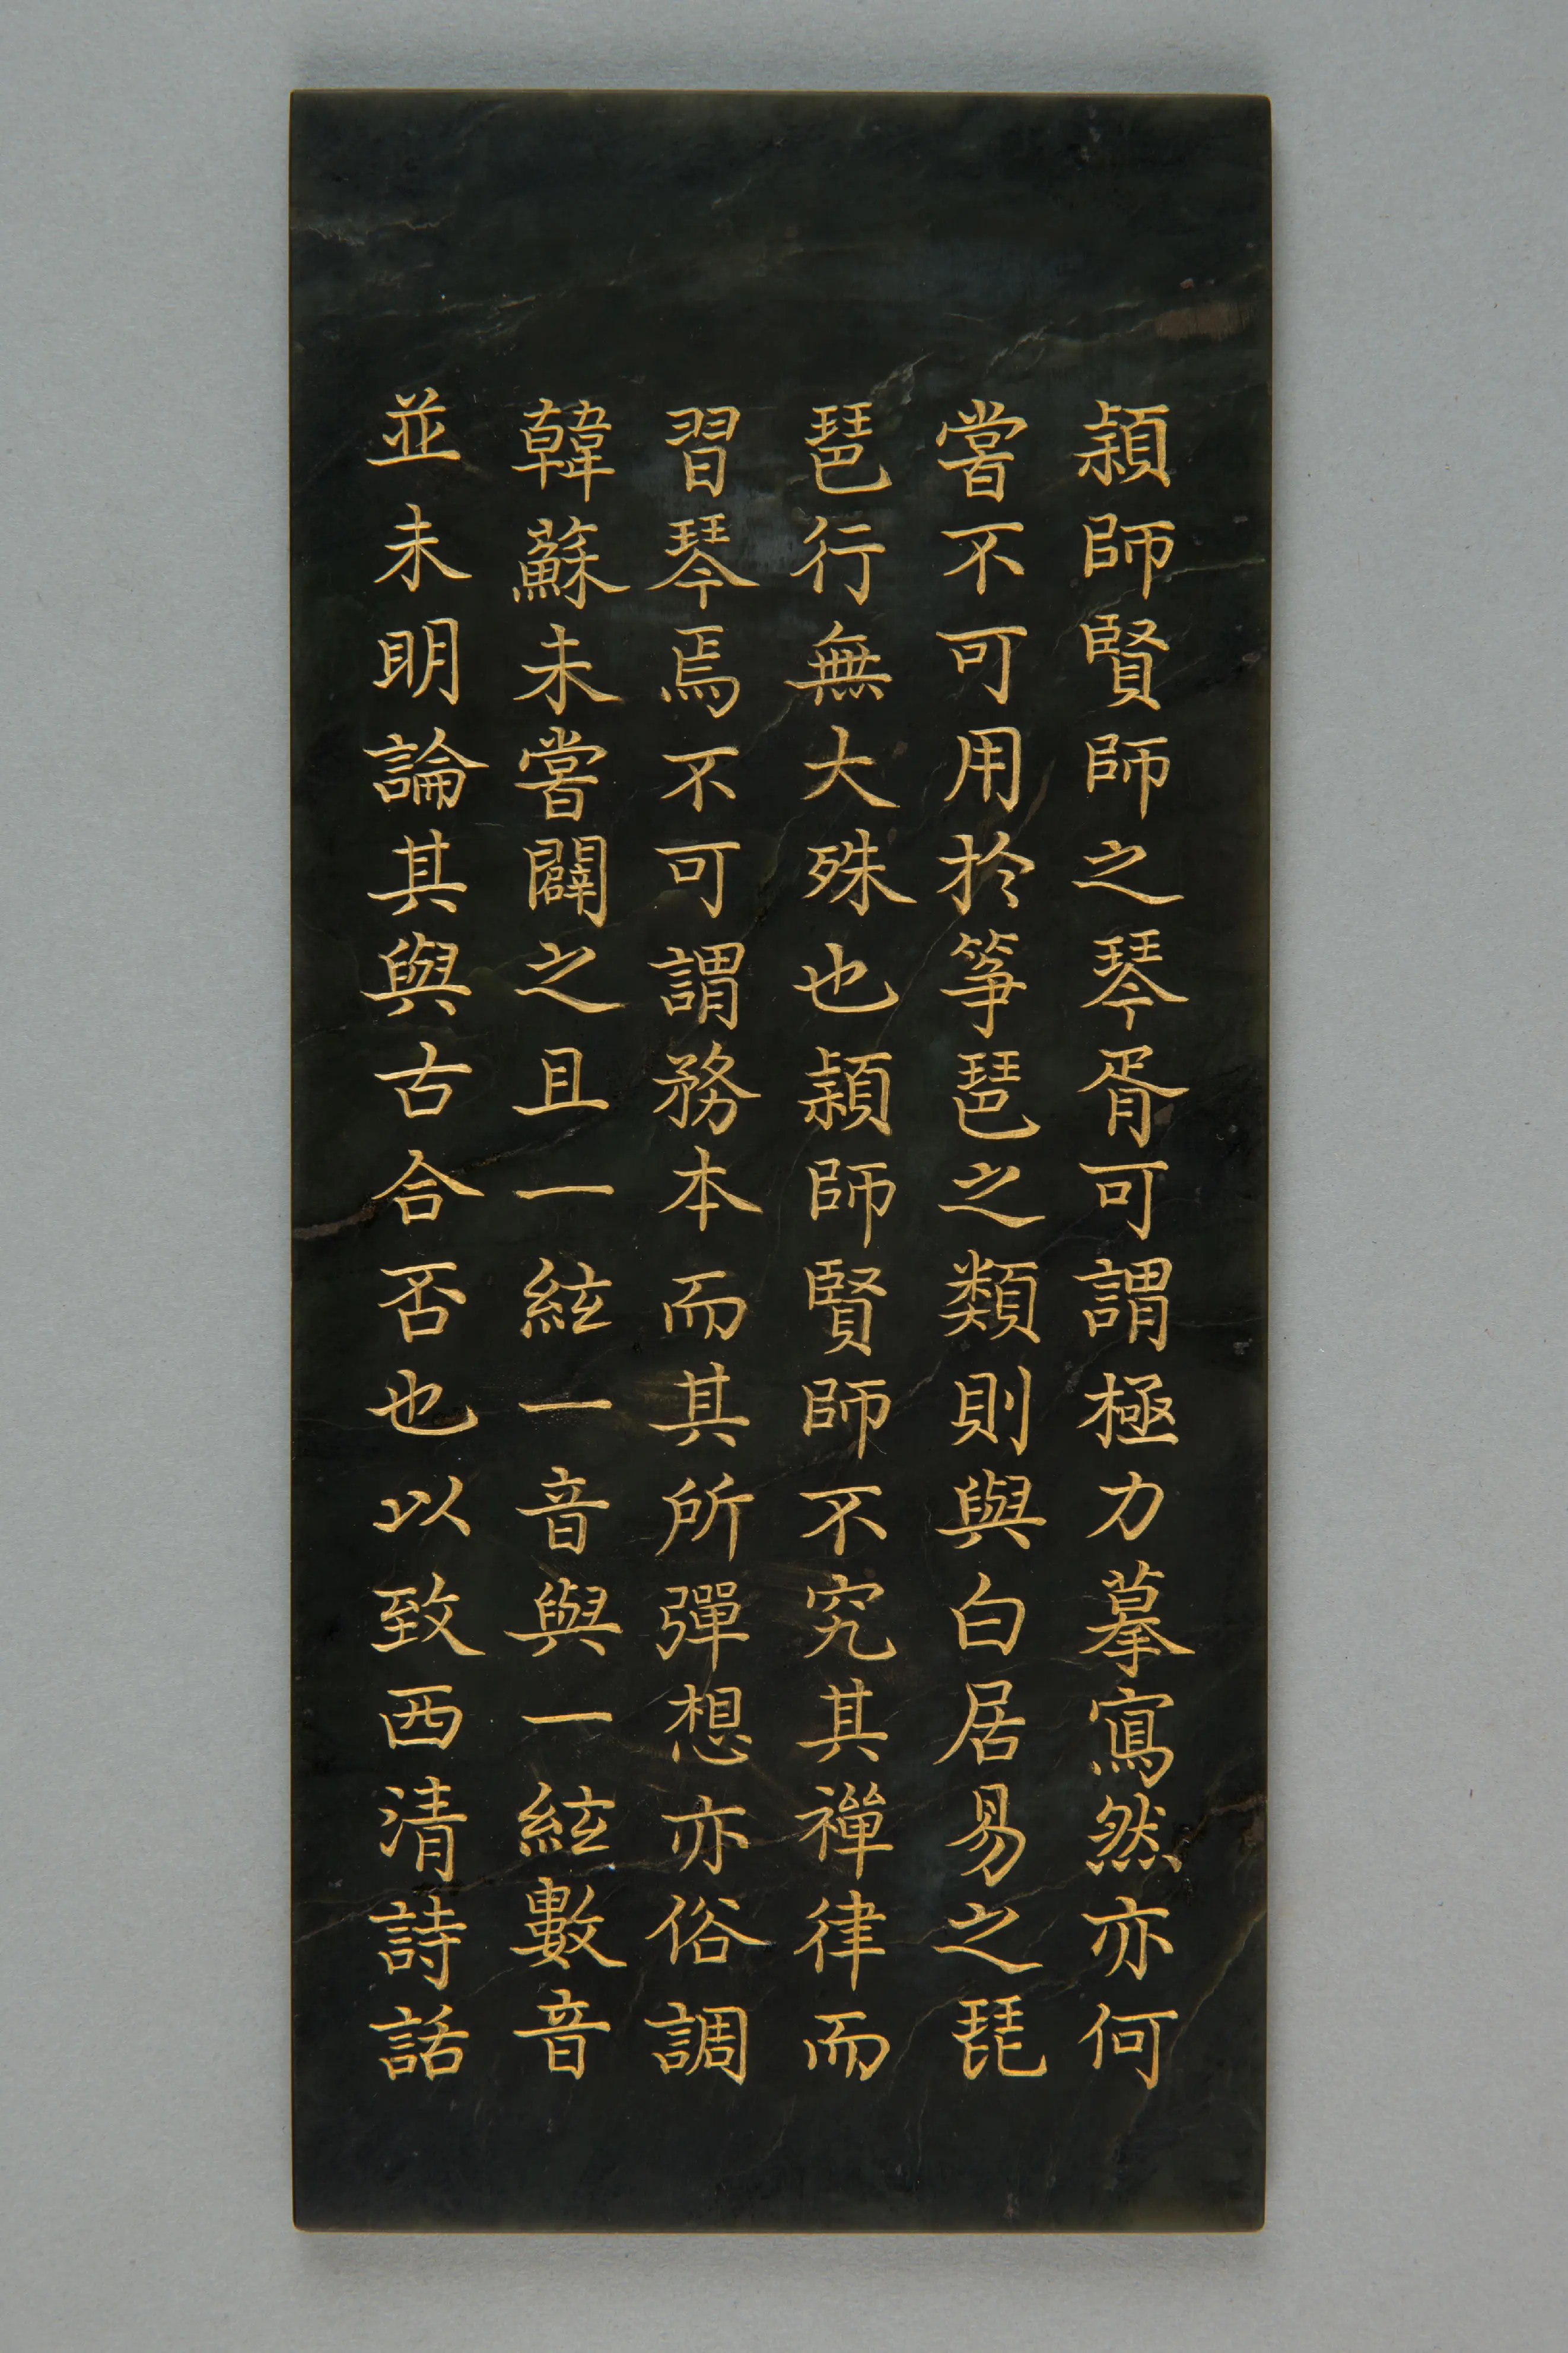 頴師賢師之琴胥可謂極力摹寫然亦何
嘗不可用於箏琶之類則與白居易之琵
琶行無大殊也頴師賢師不究其禪律而
習琴焉不可謂務本而其所彈想亦俗調
韓蘇未嘗闢之且一絃一音與一絃數音
並未明論其與古合否也以致西清詩話